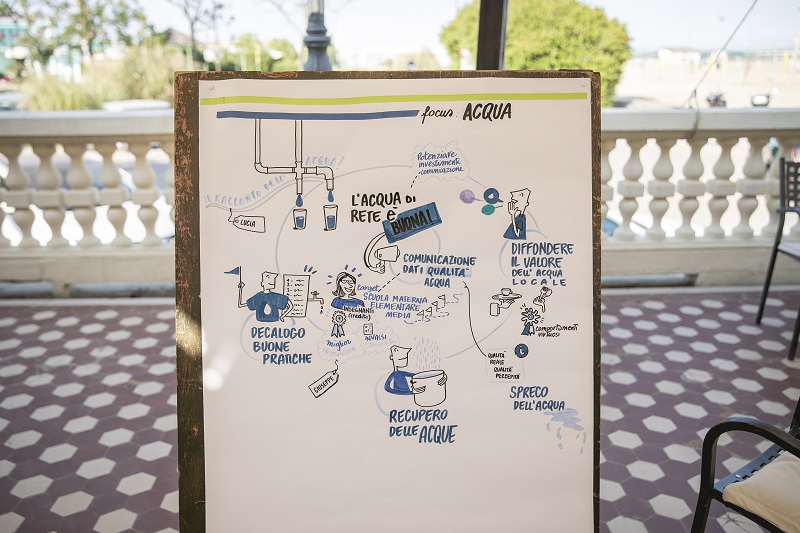 focus: ACQUA
ACQUA!
IL RACCONTO DELL'
LUCIA
Potenziare
investimenti
comunicazione
L'ACQUA DI
RETE è
BUONA!
COMUNICAZIONE
DATI QUALITA'
ACQUA
DIFFONDERE
IL VALORE
DELL'ACQUA
LOCALE
target
SCUOLA MATERNA
ELEMENTARE
MEDIA
INSEGNANTI
(crediti)
INVALSI
miglior
GIUSEPPE
DECALOGO
BUONE
PRATICHE
comportamenti
virtuosi
QUALITÀ
REALE
QUALITA'
PERCEPITA
SPRECO
DELL'ACQUA
RECUPERO
DELLE ACQUE